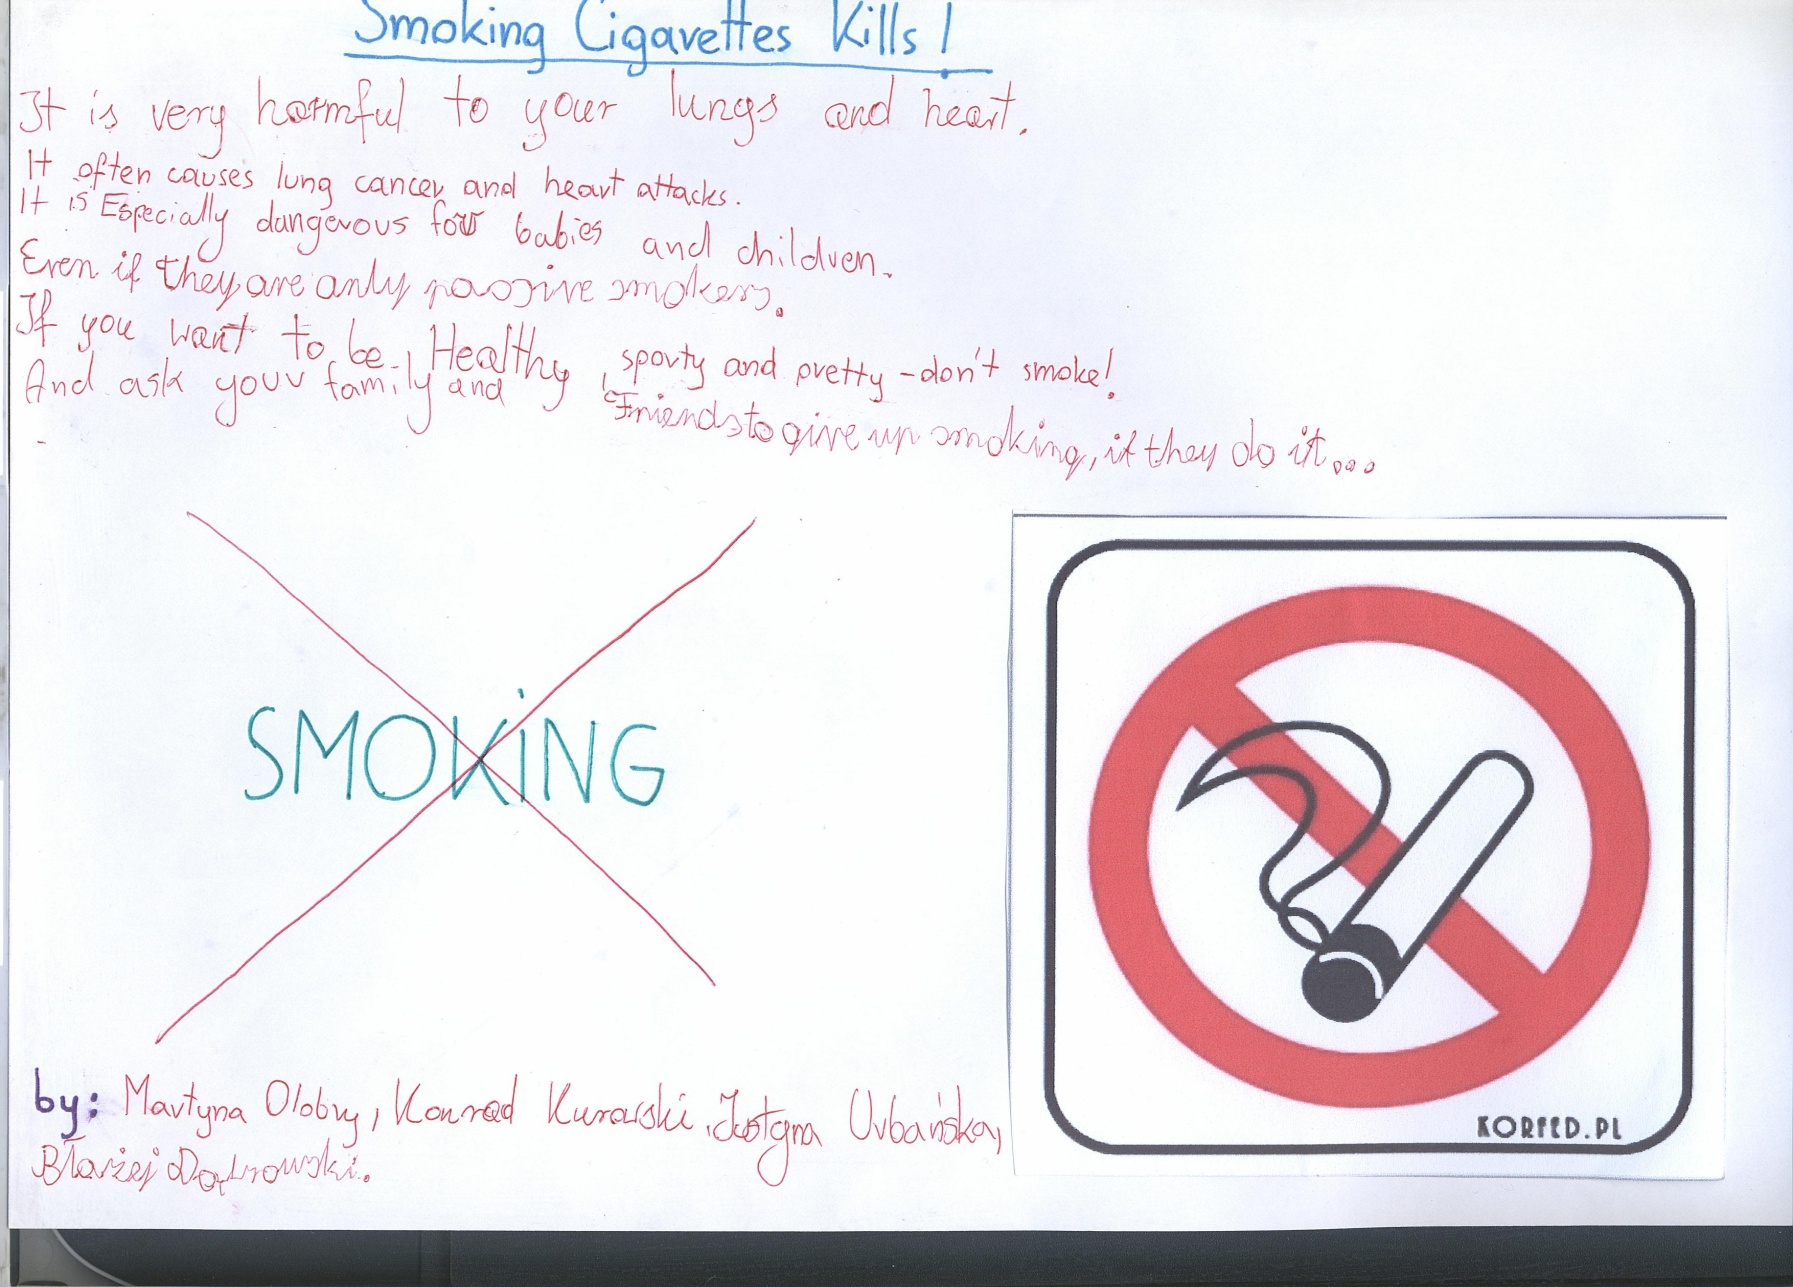 Smoking Cigarettes Kills!
It is very harmful to your lungs and heart.
It often causes lung cancer and heart attacks.
It is Especially dangerous for babies and children.
Even if they are only passive smokers.
If you want to be Healthy, sporty and pretty - don't smoke!
And ask your family and Friends to give up smoking, if they do it...
SMOKiNG
KORFED.PL
by: Martyna Olobry, Konrad Kurowski, Justyna Urbańska,
Błażej Dąbrowski.